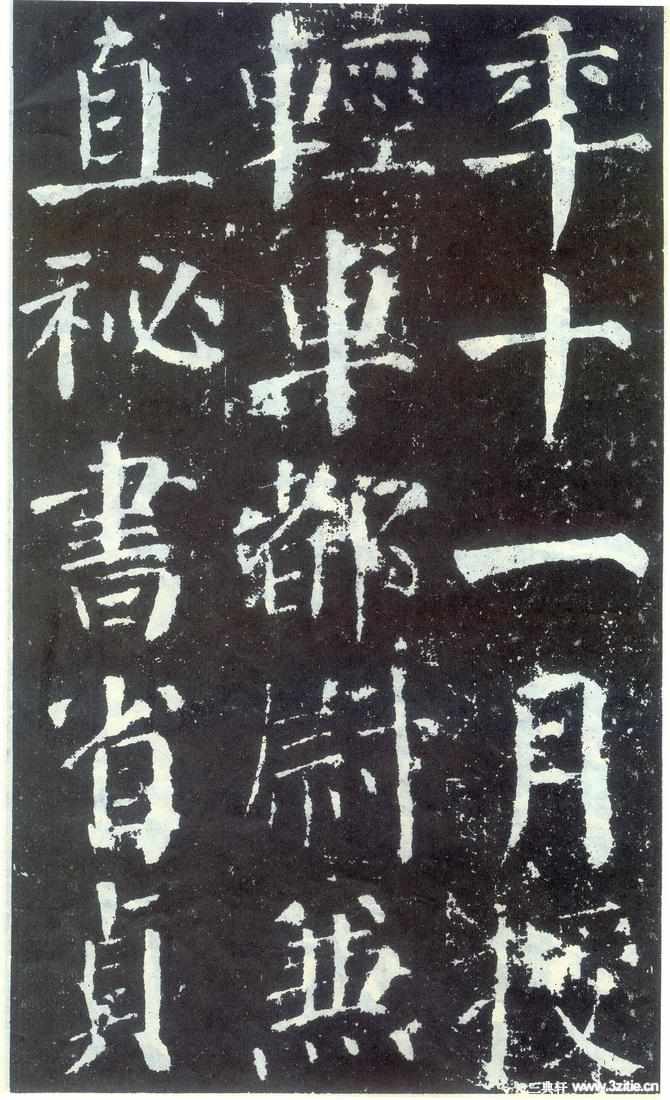 年十一月授
輕車都尉兼
直祕書省貞
三典轩 www.3zitie.cn